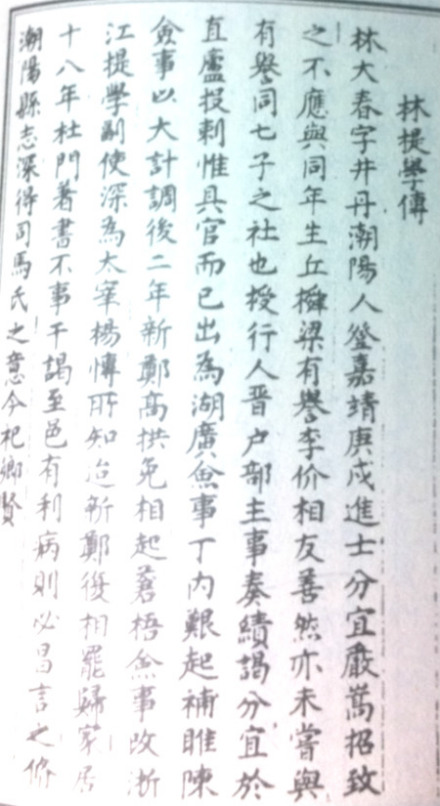 林提學傳
林大春字井丹潮陽人登嘉靖庚戌進士分宜嚴嵩招致
之不應與同年生丘橓梁有譽李价相友善然亦未嘗與
有譽同七子之社也授行人晋户部主事奏績謁分宜於
直廬投刺惟具官而已出為湖廣僉事丁内艱起補睢陳
僉事以大計調後二年新鄭高拱免相起蒼梧僉事改浙
江提學副使深為太宰楊愽所知迨新鄭復相罷歸家居
十八年杜門著書不事干謁至邑有利病則必昌言之修
潮陽縣志深得司馬氏之意今祀鄉賢